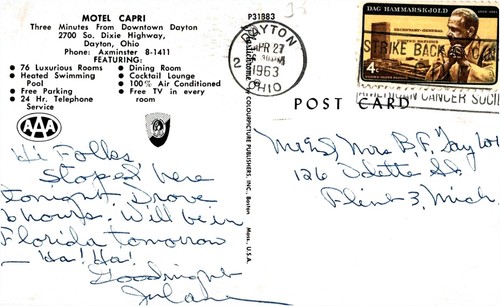 MOTEL CAPRI
Three Minutes From Downtown Dayton
2700 So. Dixie Highway,
Dayton, Ohio
Phone: Axminster 8-1411
FEATURING:
● 76 Luxurious Rooms
● Heated Swimming
Pool
● Free Parking
● 24 Hr. Telephone
Service
● Dining Room
● Cocktail Lounge
● 100% Air Conditioned
● Free TV in every
room
AAA
Hi Folks
Stoped here
tonight. Drove
6 hours. Will be in
Florida tomorrow
— Ha! Ha!
Goodnight
P31883
COLOURPICTURE PUBLISHERS, INC., Boston Mass., U.S.A.
DAYTON
APR 27
2
1963
OHIO
DAG HAMMARSKJOLD
SECRETARY-GENERAL
UNITED NATIONS
4¢
STRIKE BACK
AMERICAN CANCER SOCI
POST CARD
Mr & Mrs B. F. Taylor
126 Odette St
Flint 3, Mich.